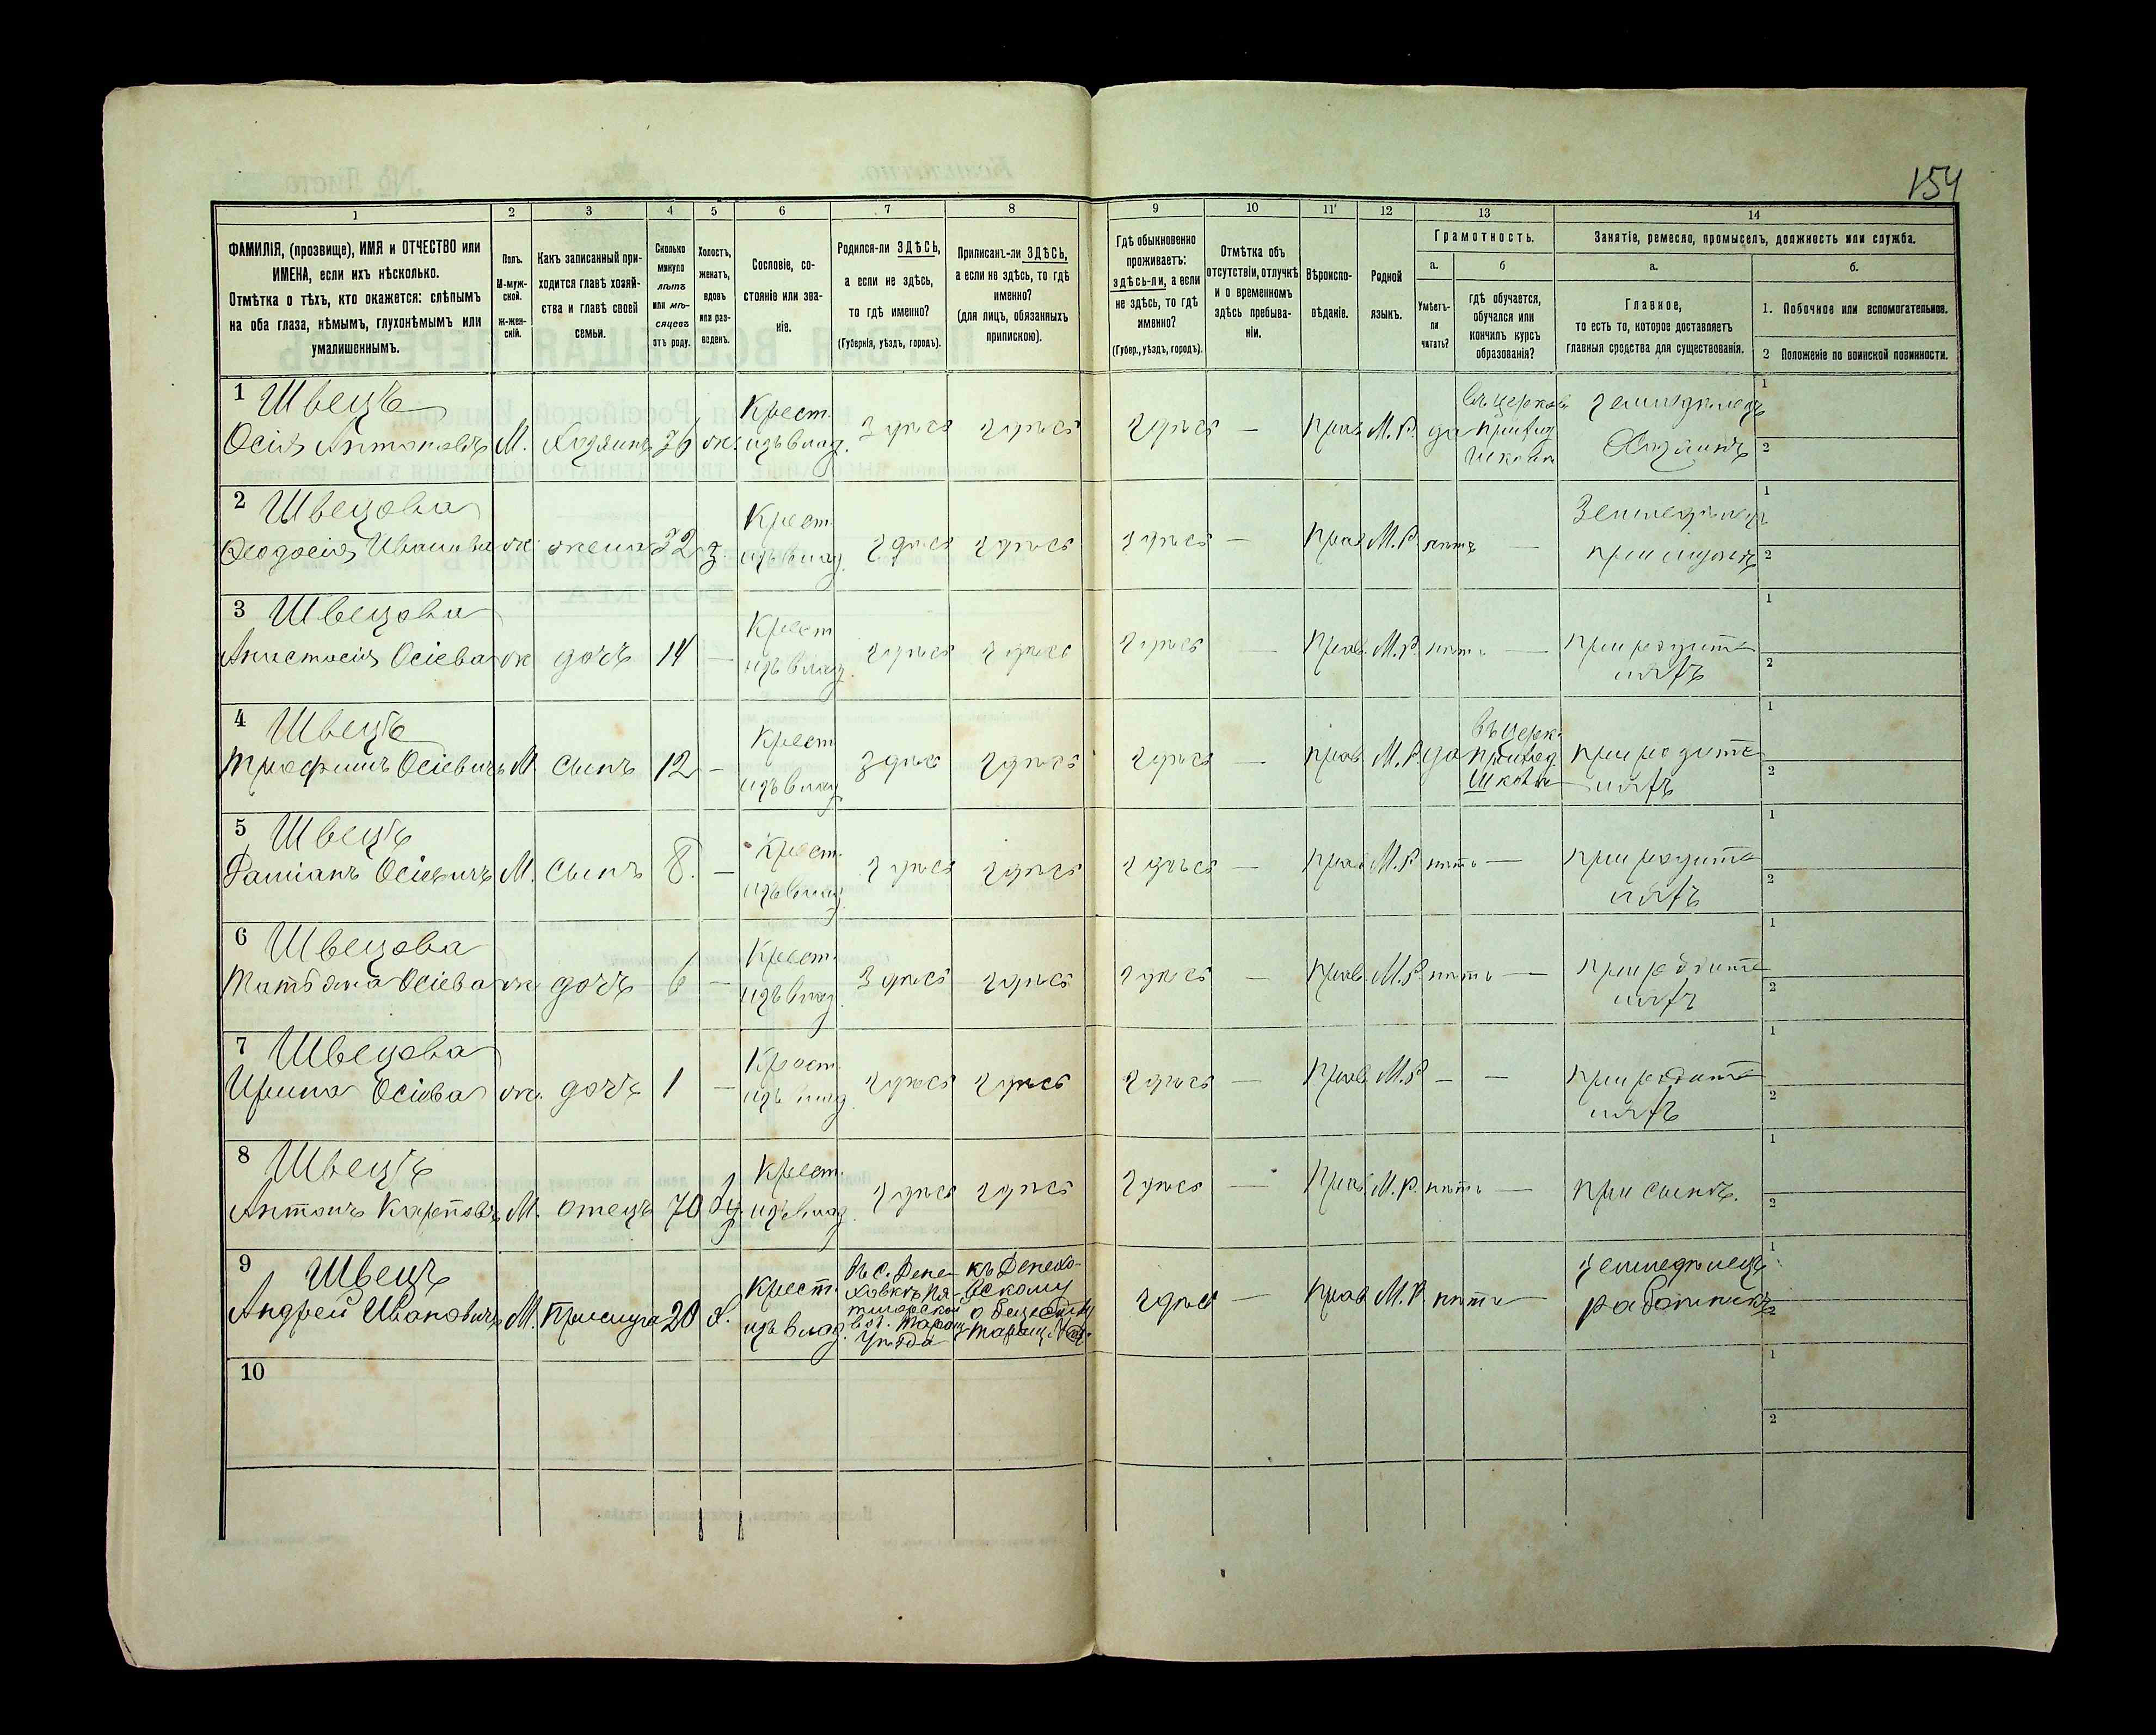 154
1 2 3 4 5 6 7 8 9 10 11 12 13 14
ФАМИЛІЯ, (прозвище), ИМЯ и ОТЧЕСТВО или
ИМЕНА, если ихъ нѣсколько.
Отмѣтка о тѣхъ, кто окажется: слѣпымъ
на оба глаза, нѣмымъ, глухонѣмымъ или
умалишеннымъ.
Полъ.
М-муж-
ской.
Ж-жен-
скій.
Какъ записанный при-
ходится главѣ хозяй-
ства и главѣ своей
семьи.
Сколько
минуло
лѣтъ
или мѣ-
сяцевъ
отъ роду.
Холостъ,
женатъ,
вдовъ
или раз-
веденъ.
Сословіе, со-
стояніе или зва-
ніе.
Родился-ли ЗДѢСЬ,
а если не здѣсь,
то гдѣ именно?
(Губернія, уѣздъ, городъ).
Приписанъ-ли ЗДѢСЬ,
а если не здѣсь, то гдѣ
именно?
(для лицъ, обязанныхъ
припискою).
Гдѣ обыкновенно
проживаетъ:
здѣсь-ли, а если
не здѣсь, то гдѣ
именно?
(Губер., уѣздъ, городъ).
Отмѣтка объ
отсутствіи, отлучкѣ
и о временномъ
здѣсь пребыва-
ніи.
Вѣроиспо-
вѣданіе.
Родной
языкъ.
Грамотность.
а.
Умѣетъ-
ли
читать?
б
гдѣ обучается,
обучался или
кончилъ курсъ
образованія?
Занятіе, ремесло, промыселъ, должность или служба.
а.
Главное,
то есть то, которое доставляетъ
главныя средства для существованія.
б.
1. Побочное или вспомогательное.
2 Положеніе по воинской повинности.
1 Швецъ
Осія Антоновъ М. Хозяинъ 36 ж. Крест. изъ влад. здѣсь здѣсь здѣсь — прав М.Р. да въ церков. приход школѣ земледѣлецъ Хозяинъ 1 2
2 Швецова
Ѳеодосія Иванова ж жена 32 з Крест. изъ влад. здѣсь здѣсь здѣсь — прав М.Р. нѣтъ — Земледѣлецъ при мужѣ 1 2
3 Швецова
Анастасія Осіева ж дочь 14 — Крест изъ влад. здѣсь здѣсь здѣсь — прав. М.Р. нѣтъ — при родите ляхъ 1 2
4 Швецъ
Трофимъ Осіевичъ М сынъ 12 — Крест изъ влад здѣсь здѣсь здѣсь — прав. М.Р. да въ церк. приход. школѣ при родите ляхъ 1 2
5 Швецъ
Даміанъ Осіевичъ М. сынъ 8. — Крест. изъ влад. здѣсь здѣсь здѣсь — прав М.Р нѣтъ — при родите ляхъ 1 2
6 Швецова
Татьяна Осіева ж дочь 6 — Крест. изъ влад. здѣсь здѣсь здѣсь — прав. М.Р. нѣтъ — при родите ляхъ 1 2
7 Швецова
Ирина Осіева ж. дочь 1 — Крест. изъ влад. здѣсь здѣсь здѣсь — прав. М.Р — — при родите ляхъ 1 2
8 Швецъ
Антонъ Карповъ М. отецъ 70 Крест. изъ влад. здѣсь здѣсь здѣсь — прав. М.Р. нѣтъ — при сынѣ. 1 2
9 Швецъ
Андрей Ивановичъ М. Прислуга 20 х. Крест. изъ влад. въ с. Дене- ховкѣ Пя- тигорской вол. Таращ уѣзда къ Денехо- вскому обществу Таращ. здѣсь — прав М.Р. нѣтъ — земледѣлецъ работникъ 1 2
10 1 2